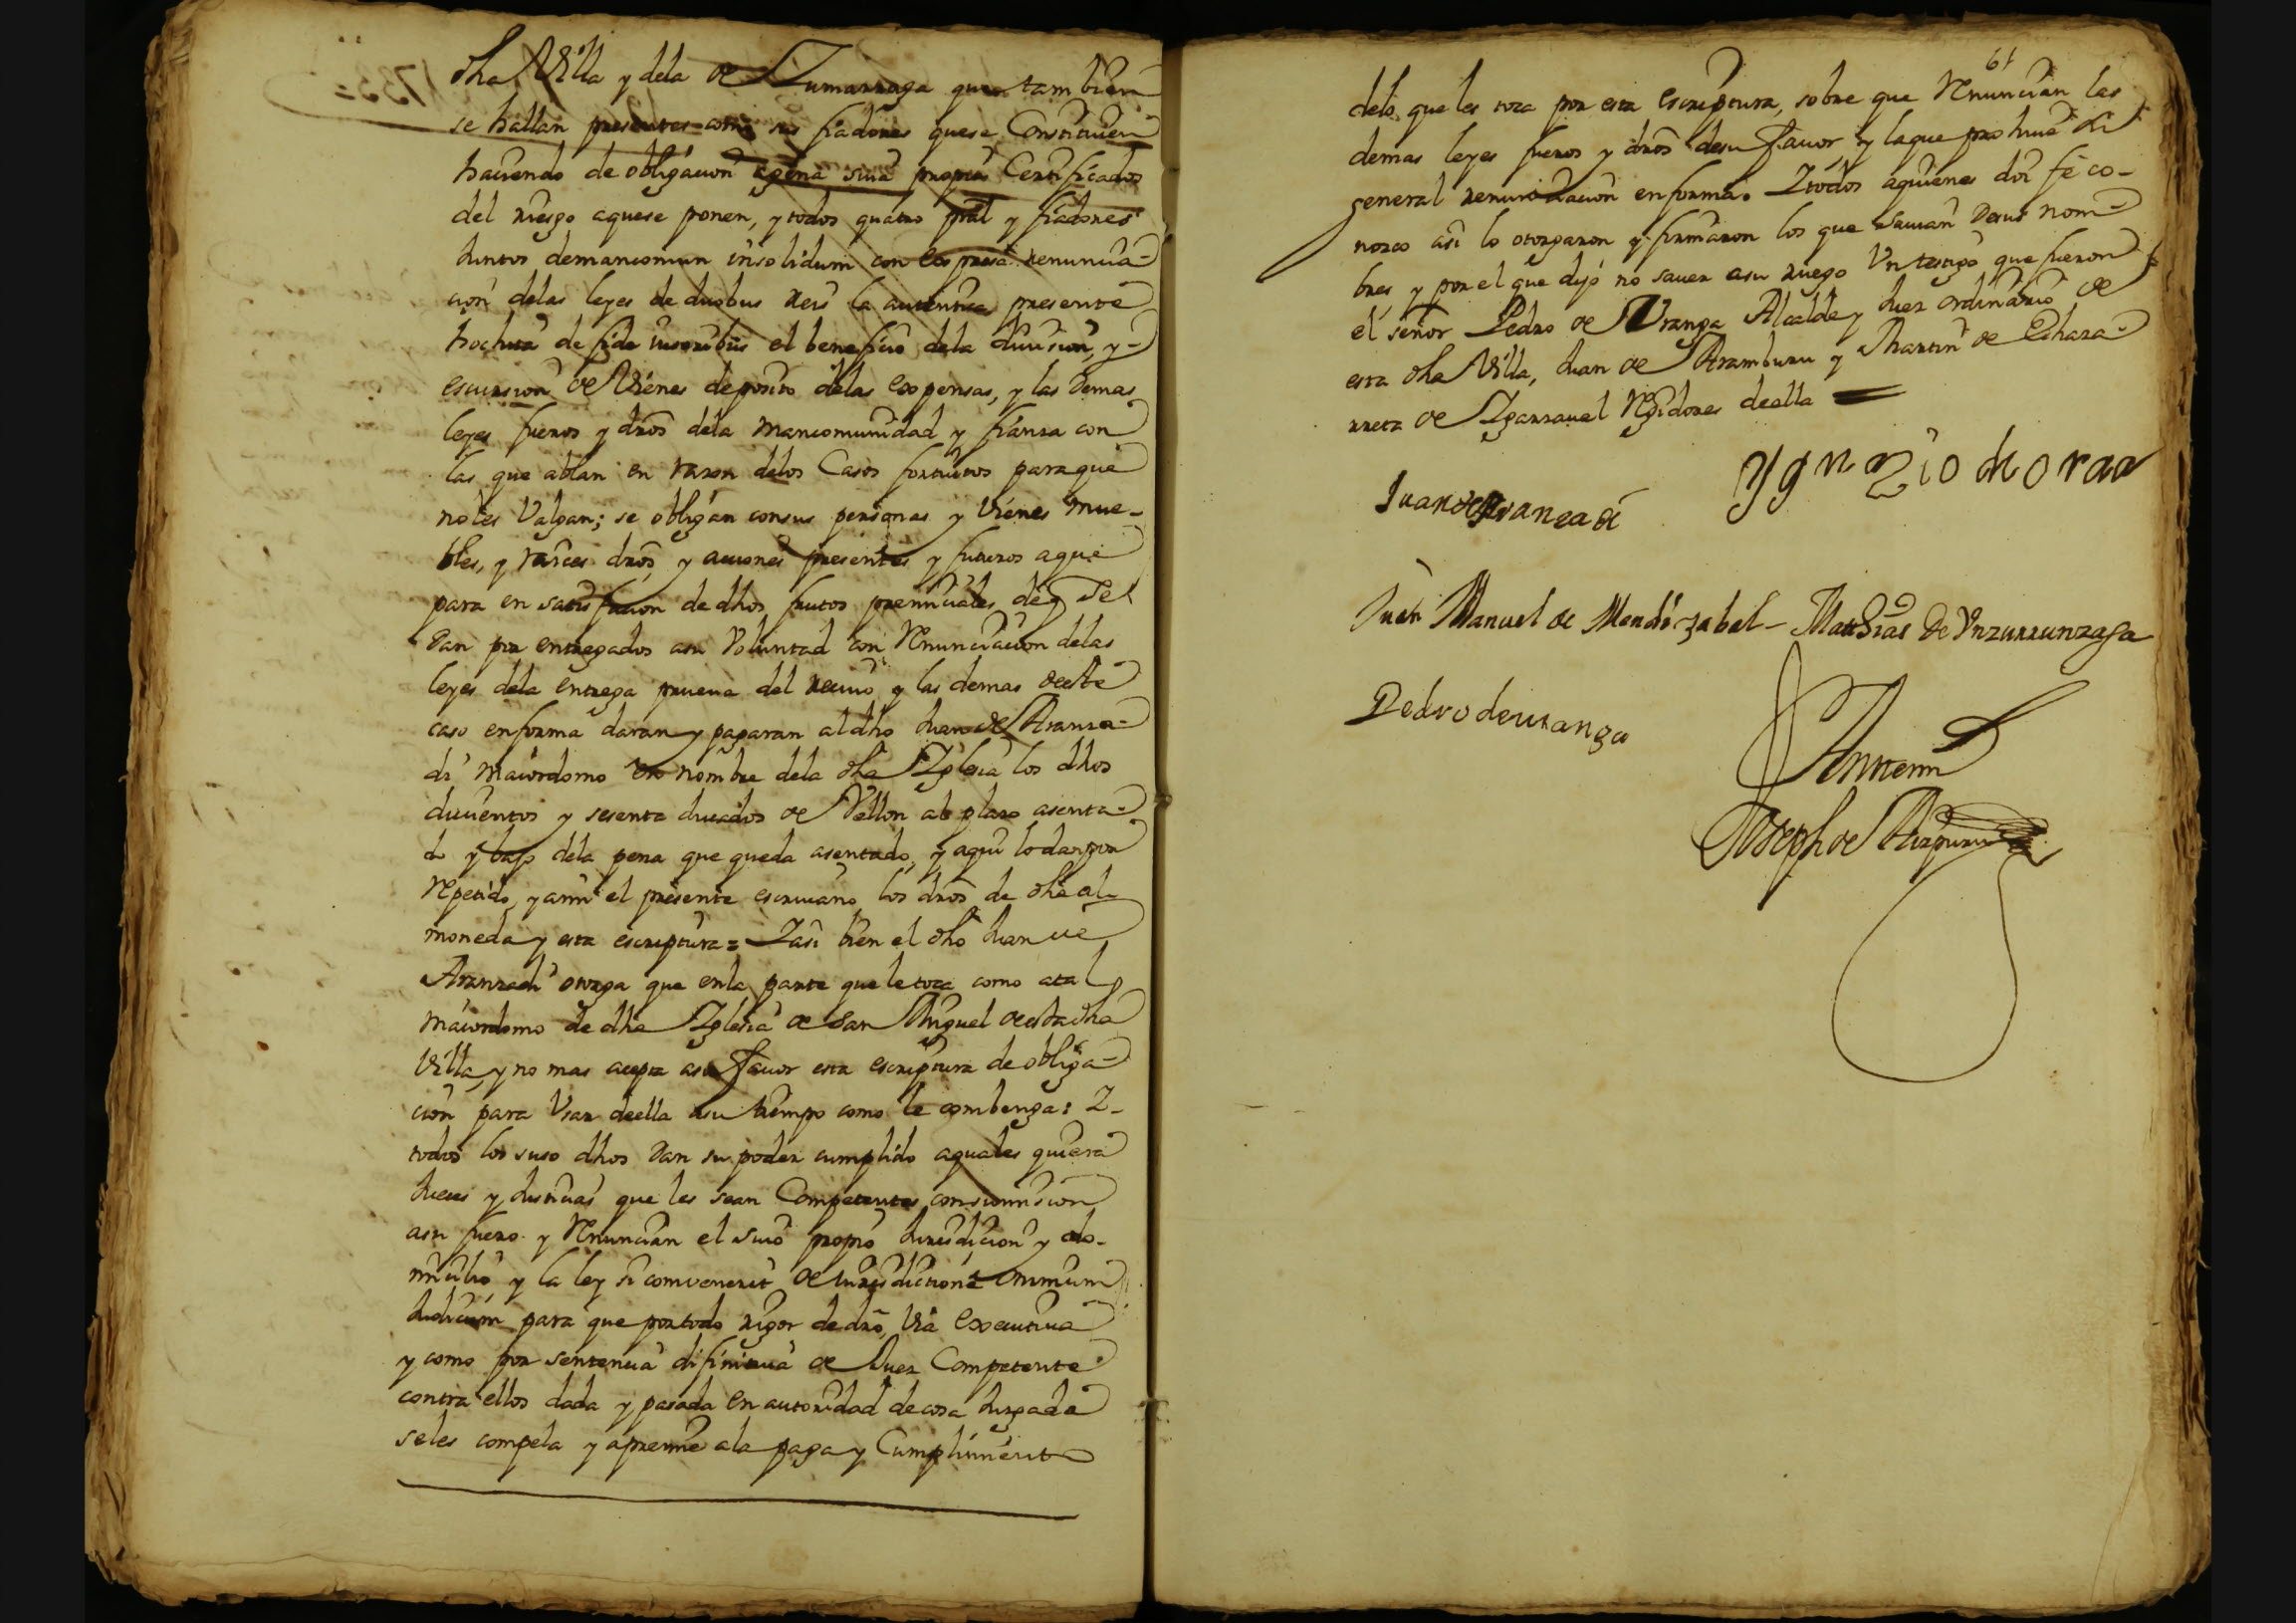 dha Villa y dela de Zumarraga que tambien
se hallan presentes como sus fiadores quese Constituien
haciendo de obligacion agena suia propia Certificados
del riesgo aquese ponen, y todos quatro pral y fiadores
Juntos demancomun insolidum con expresa renuncia-
cion delas leyes de duobus reis la autentica presente
hochita de fide iusoribus el beneficio dela division, y
escursion de Vienes deposito delas expensas, y las demas
leyes fueros y dros dela mancomunidad y fianza con
las que ablan en razon delos Casos fortuitos paraque
noles Valgan; se obligan consus personas y Vienes mue-
bles, y raices dros, y acciones presentes y futuros aque
para en satisfacion de dhos frutos premiciales deq Se
dan por entregados asu Voluntad con Renunciacion delas
leyes dela entrega prueva del recivo y las demas deeste
caso enforma daran y pagaran al dho Juan de Aranza-
di maiordomo en nombre dela dha Iglesia los dhos
ducientos y sesenta ducados de Vellon al plazo asenta-
do y bajo dela pena que queda asentado, y aqui lo dan por
Repetido, y ami el presente escrivano los dros de dha al-
moneda y esta escriptura = I asi bien el dho Juan de
Aranzadi otorga que enla parte que le toca como atal
maiordomo de dha Iglesia de San Miguel deesta dha
Villa, y no mas acepta asu favor esta escriptura de obliga-
cion para Vsar deella asu tiempo como le combenga: I-
todos los suso dhos dan su poder cumplido aquales quiera
Jueces y Justicias que les sean Competentes consumision
asu fuero y Renuncian el suio propio Jurisdicion y do-
micilio, y la ley si convenerit de Jurisdictione omnium
Judicum para que portodo rigor de dro, Via executiva
y como por sentencia difinitiva de Juez Competente
contra ellos dada y pasada en autoridad de cosa Juzgada
seles compela y apremie ala paga y Cumplimiento
61
delo que les toca por esta escriptura, sobre que Renuncian las
demas leyes fueros y dros desu favor y laque prohive
general renunciacion enforma. I todos aquienes doi fe co-
nozco asi lo otorgaron y firmaron los que savian desus nom-
bres y por el que dijo no saver asu ruego Vn testigo que fueron
el señor Pedro de Vranga Alcalde y Juez ordinario de
esta dha Villa, Juan de Aramburu y Martin de Echaza-
rreta de Izarravel Regidores deella
Juan de Aranzadi
Pedro deuranga
Juan Manuel de Mendizabal - Mathias De Vnzurrunzaga
Antemi
Joseph de Aizpuru